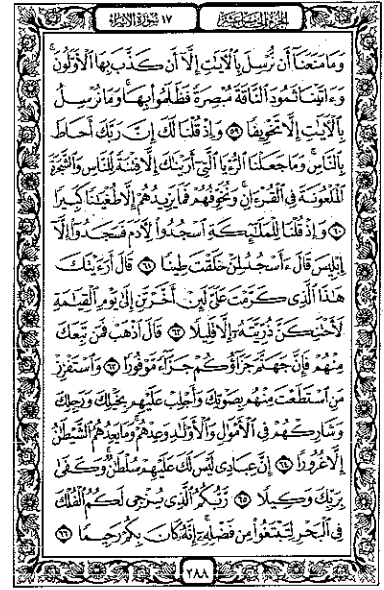 الجزء الخامس عشر
١٧ سورة الإسراء
وَمَا مَنَعَنَا أَن نُّرْسِلَ بِالْآيَٰتِ إِلَّا أَن كَذَّبَ بِهَا الْأَوَّلُونَ
وَءَاتَيْنَا ثَمُودَ النَّاقَةَ مُبْصِرَةً فَظَلَمُوا بِهَا وَمَا نُرْسِلُ
بِالْآيَٰتِ إِلَّا تَخْوِيفًا ٥٩ وَإِذْ قُلْنَا لَكَ إِنَّ رَبَّكَ أَحَاطَ
بِالنَّاسِ وَمَا جَعَلْنَا الرُّءْيَا الَّتِي أَرَيْنَٰكَ إِلَّا فِتْنَةً لِّلنَّاسِ وَالشَّجَرَةَ
الْمَلْعُونَةَ فِي الْقُرْءَانِ وَنُخَوِّفُهُمْ فَمَا يَزِيدُهُمْ إِلَّا طُغْيَٰنًا كَبِيرًا
٦٠ وَإِذْ قُلْنَا لِلْمَلَٰئِكَةِ اسْجُدُوا لِآدَمَ فَسَجَدُوا إِلَّا
إِبْلِيسَ قَالَ ءَأَسْجُدُ لِمَنْ خَلَقْتَ طِينًا ٦١ قَالَ أَرَءَيْتَكَ
هَٰذَا الَّذِي كَرَّمْتَ عَلَيَّ لَئِنْ أَخَّرْتَنِ إِلَىٰ يَوْمِ الْقِيَٰمَةِ
لَأَحْتَنِكَنَّ ذُرِّيَّتَهُ إِلَّا قَلِيلًا ٦٢ قَالَ اذْهَبْ فَمَن تَبِعَكَ
مِنْهُمْ فَإِنَّ جَهَنَّمَ جَزَاؤُكُمْ جَزَاءً مَّوْفُورًا ٦٣ وَاسْتَفْزِزْ
مَنِ اسْتَطَعْتَ مِنْهُم بِصَوْتِكَ وَأَجْلِبْ عَلَيْهِم بِخَيْلِكَ وَرَجِلِكَ
وَشَارِكْهُمْ فِي الْأَمْوَٰلِ وَالْأَوْلَٰدِ وَعِدْهُمْ وَمَا يَعِدُهُمُ الشَّيْطَٰنُ
إِلَّا غُرُورًا ٦٤ إِنَّ عِبَادِي لَيْسَ لَكَ عَلَيْهِمْ سُلْطَٰنٌ وَكَفَىٰ
بِرَبِّكَ وَكِيلًا ٦٥ رَّبُّكُمُ الَّذِي يُزْجِي لَكُمُ الْفُلْكَ
فِي الْبَحْرِ لِتَبْتَغُوا مِن فَضْلِهِ إِنَّهُ كَانَ بِكُمْ رَحِيمًا ٦٦
٢٨٨